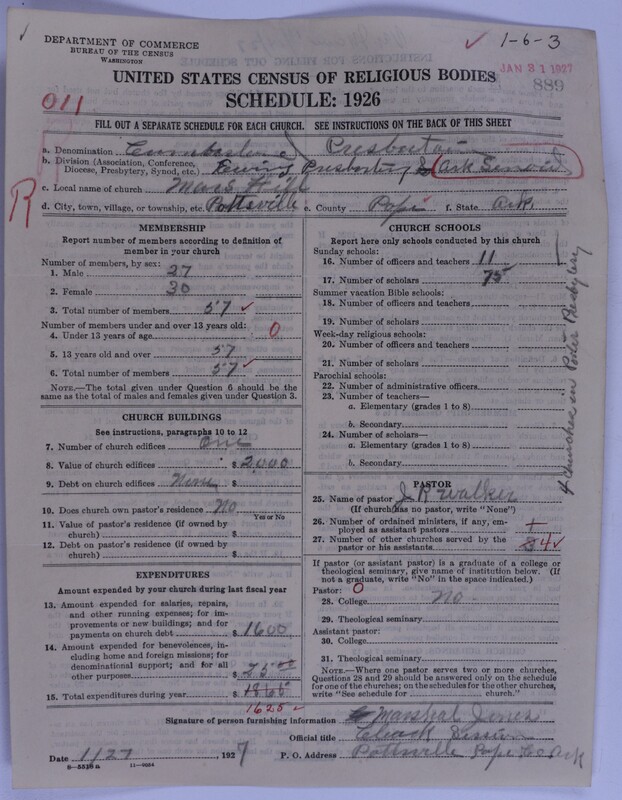 DEPARTMENT OF COMMERCE
BUREAU OF THE CENSUS
WASHINGTON
1-6-3
JAN 31 1927
889
UNITED STATES CENSUS OF RELIGIOUS BODIES
SCHEDULE: 1926
011
FILL OUT A SEPARATE SCHEDULE FOR EACH CHURCH. SEE INSTRUCTIONS ON THE BACK OF THIS SHEET
R
a. Denomination
b. Division (Association, Conference, Diocese, Presbytery, Synod, etc.) Ewing Presbertery Ark
c. Local name of church Mars Hill
d. City, town, village, or township, etc. Pottsville e. County Pope f. State Ark.
MEMBERSHIP
Report number of members according to definition of member in your church
Number of members, by sex:
1. Male 27
2. Female 30
3. Total number of members 57
Number of members under and over 13 years old:
4. Under 13 years of age 0
5. 13 years old and over 57
6. Total number of members 57
NOTE.—The total given under Question 6 should be the same as the total of males and females given under Question 3.
CHURCH BUILDINGS
See instructions, paragraphs 10 to 12
7. Number of church edifices one
8. Value of church edifices $ 2,000
9. Debt on church edifices None $
10. Does church own pastor's residence No
Yes or No
11. Value of pastor's residence (if owned by church) $
12. Debt on pastor's residence (if owned by church) $
EXPENDITURES
Amount expended by your church during last fiscal year
13. Amount expended for salaries, repairs, and other running expenses; for improvements or new buildings; and for payments on church debt $ 1600
14. Amount expended for benevolences, including home and foreign missions; for denominational support; and for all other purposes $ 25
15. Total expenditures during year $
1625
CHURCH SCHOOLS
Report here only schools conducted by this church
Sunday schools:
16. Number of officers and teachers 11
17. Number of scholars 75
Summer vacation Bible schools:
18. Number of officers and teachers
19. Number of scholars
Week-day religious schools:
20. Number of officers and teachers
21. Number of scholars
Parochial schools:
22. Number of administrative officers
23. Number of teachers—
a. Elementary (grades 1 to 8)
b. Secondary
24. Number of scholars—
a. Elementary (grades 1 to 8)
b. Secondary
4 churches in Porter Presbytery
PASTOR
25. Name of pastor J R Walker
(If church has no pastor, write "None")
26. Number of ordained ministers, if any, employed as assistant pastors
27. Number of other churches served by the pastor or his assistants 4
If pastor (or assistant pastor) is a graduate of a college or theological seminary, give name of institution below. (If not a graduate, write "No" in the space indicated.)
Pastor: 0
28. College No
29. Theological seminary
Assistant pastor:
30. College
31. Theological seminary
NOTE.—Where one pastor serves two or more churches, Questions 28 and 29 should be answered only on the schedule for one of the churches; on the schedules for the other churches, write "See schedule for church."
Signature of person furnishing information Marshal Jones
Official title Cleack Session
Date 1/27 1927 P. O. Address Pottsville Pope Co Ark
8-5516a 11-9024